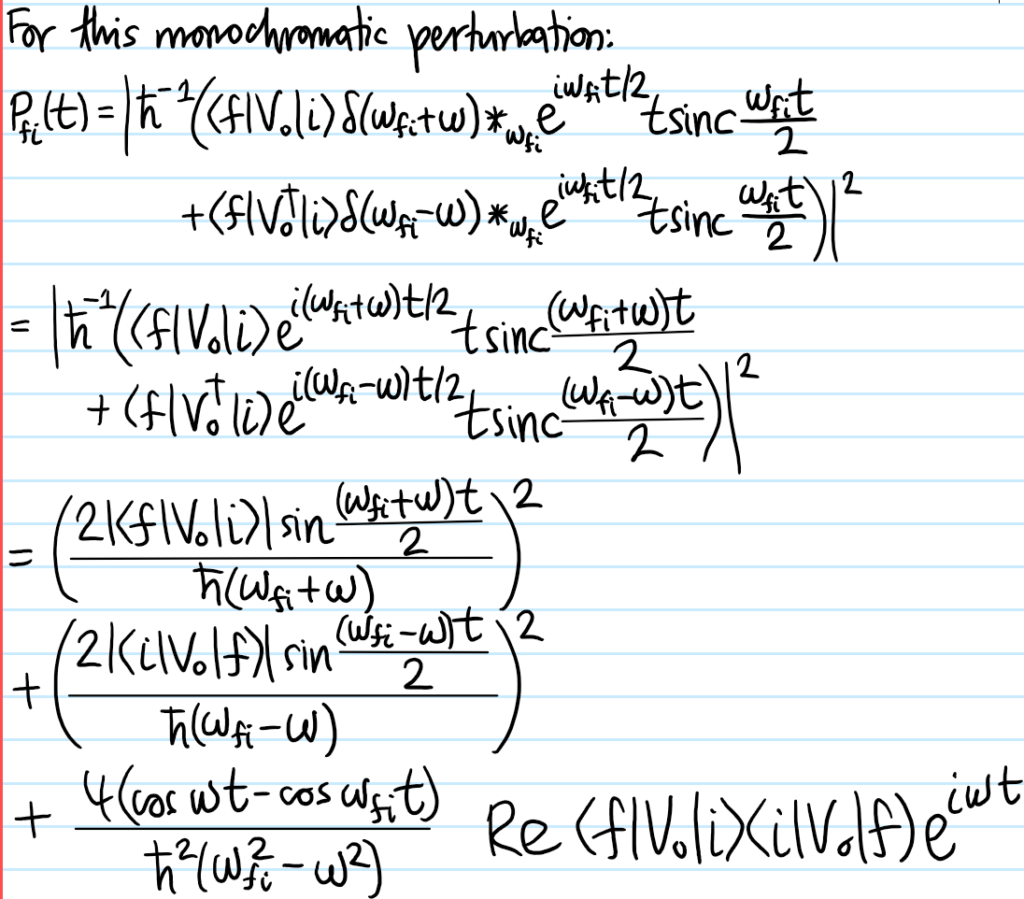 For this monochromatic perturbation:
P_fi(t) = |ħ⁻¹(⟨f|V₀|i⟩δ(ω_fi+ω) *_ω_fi e^{iω_fi t/2} t sinc (ω_fi t)/2
+⟨f|V₀†|i⟩δ(ω_fi-ω) *_ω_fi e^{iω_fi t/2} t sinc (ω_fi t)/2)|²
= |ħ⁻¹(⟨f|V₀|i⟩e^{i(ω_fi+ω)t/2} t sinc ((ω_fi+ω)t)/2
+ ⟨f|V₀†|i⟩e^{i(ω_fi-ω)t/2} t sinc ((ω_fi-ω)t)/2)|²
= (2|⟨f|V₀|i⟩| sin ((ω_fi+ω)t)/2 / ħ(ω_fi+ω))²
+ (2|⟨i|V₀|f⟩| sin ((ω_fi-ω)t)/2 / ħ(ω_fi-ω))²
+ 4(cos ωt - cos ω_fi t) / ħ²(ω_fi² - ω²) Re ⟨f|V₀|i⟩⟨i|V₀|f⟩e^{iωt}